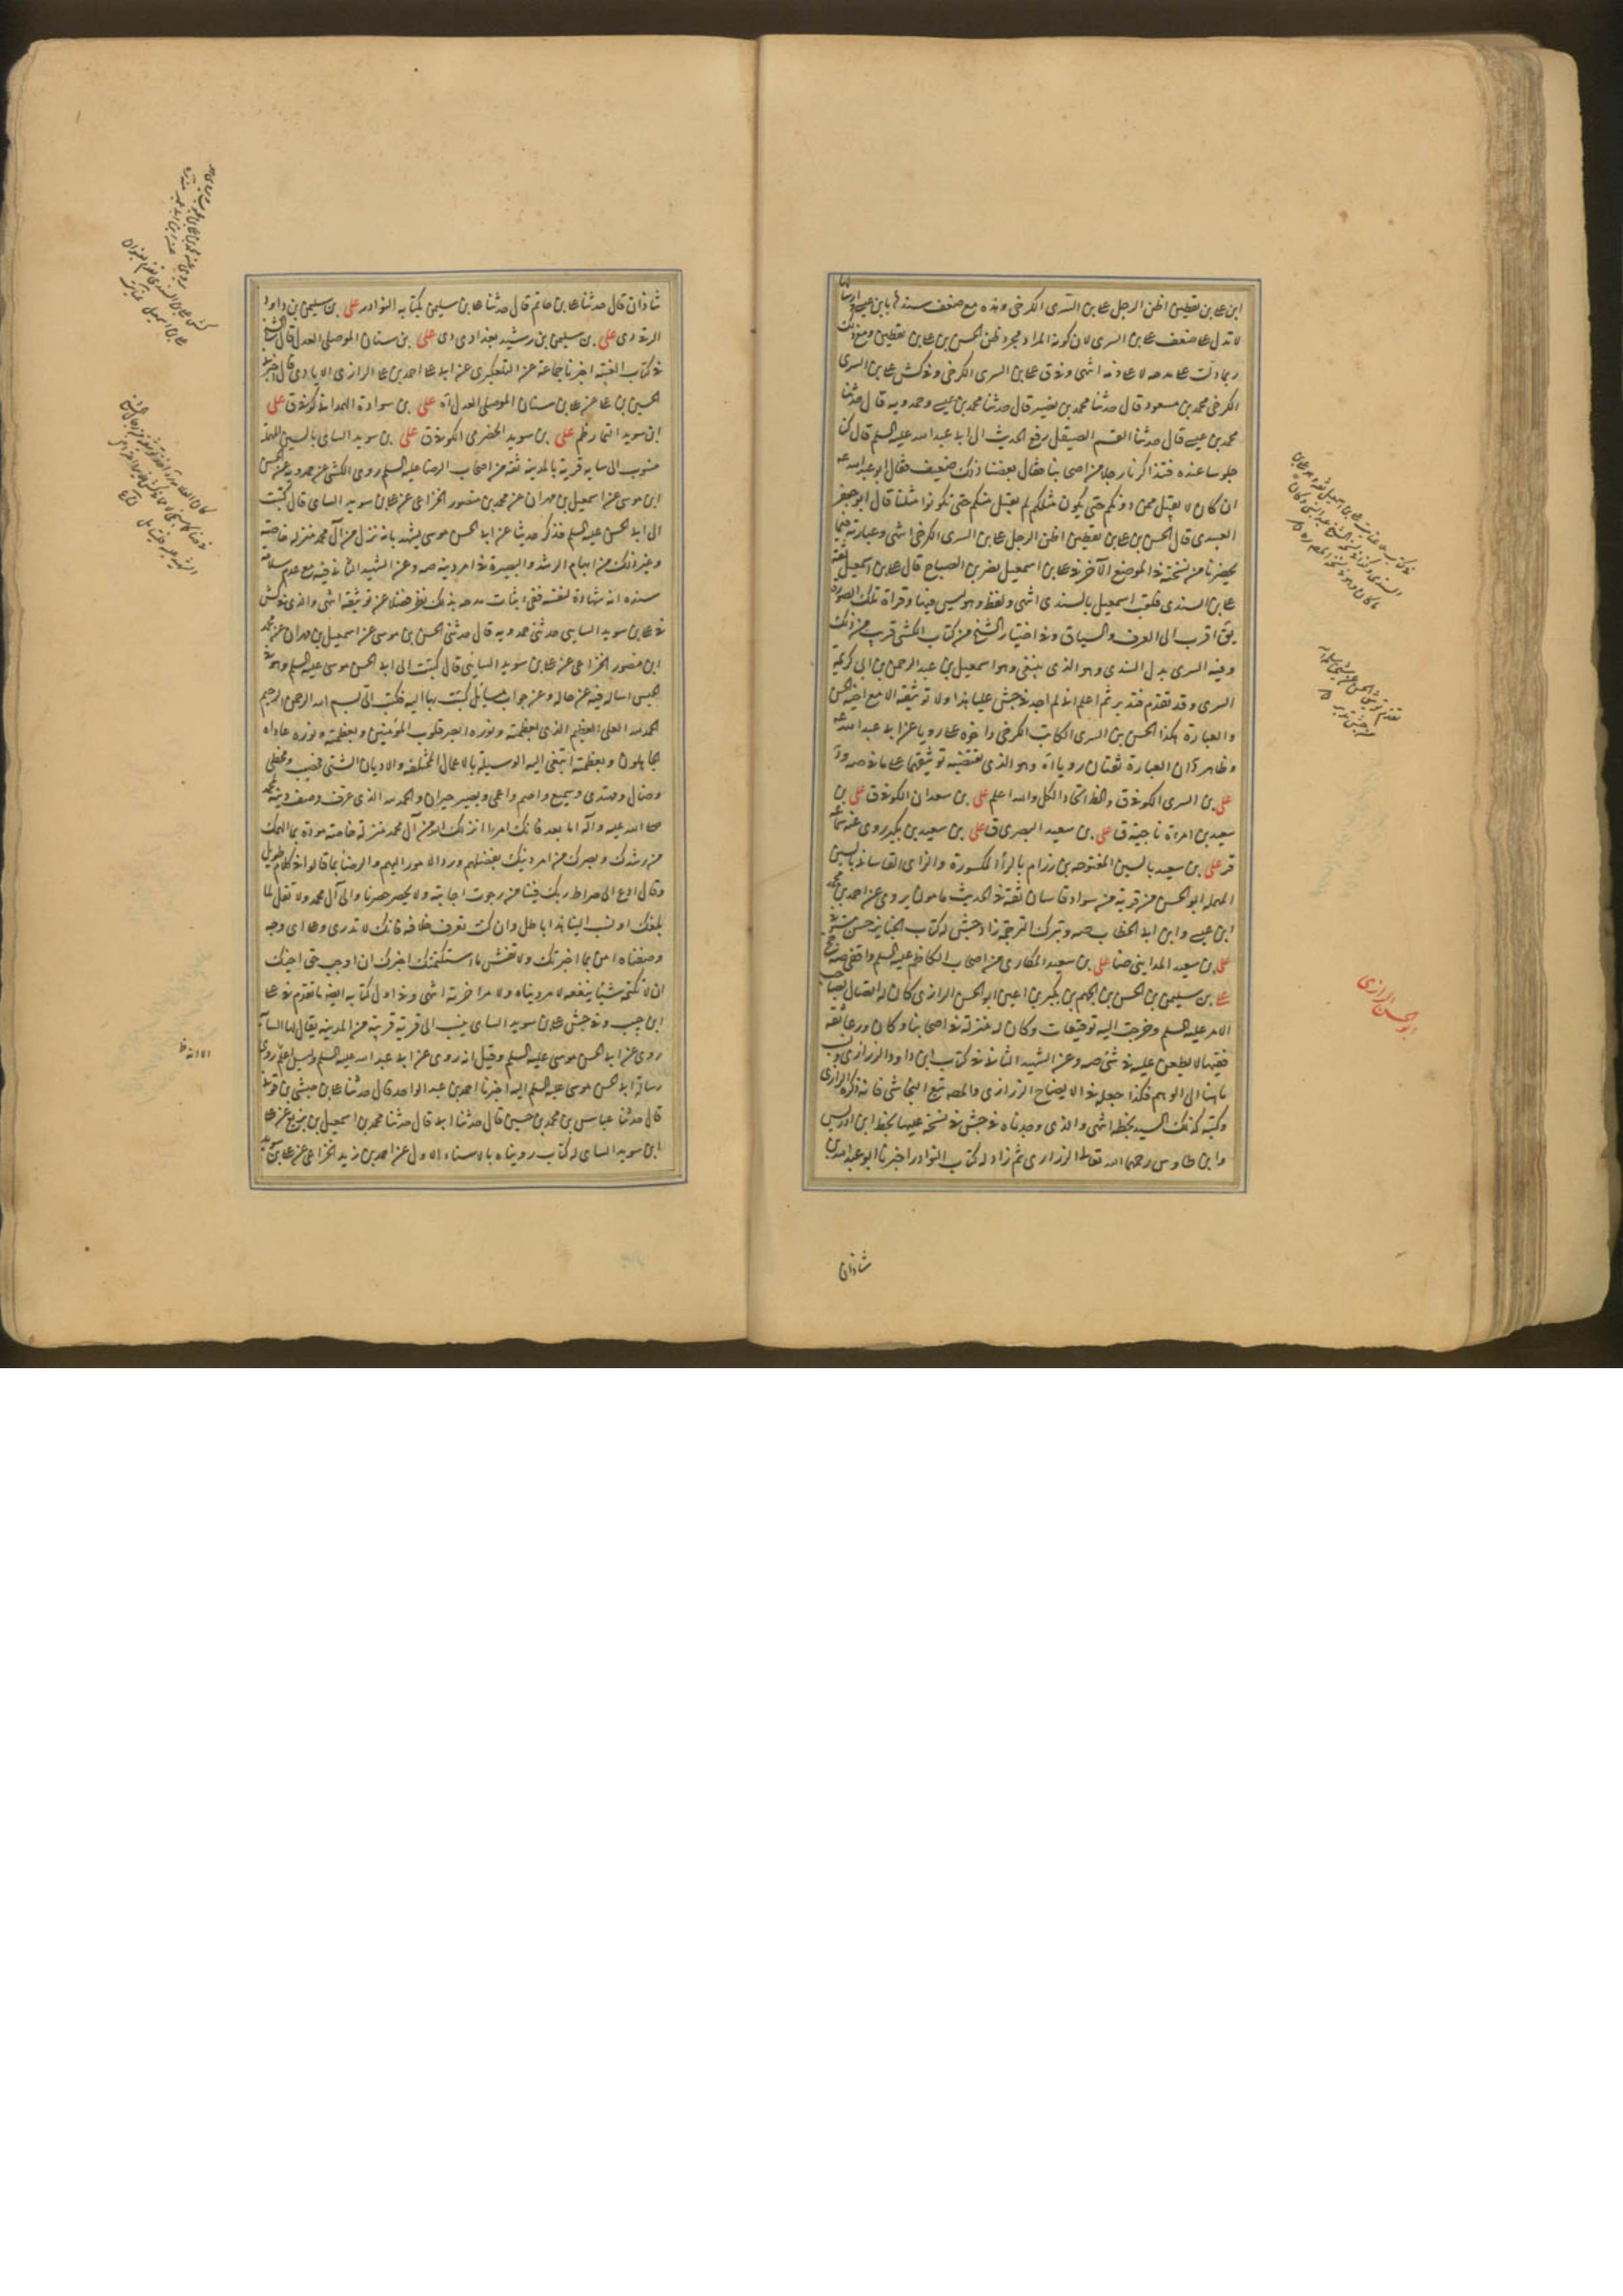 ابن على بن يقطين اظن الرجل على بن السرى الكرخى وهذه مع ضعف سندها بابن عيسى
لا تدل على ضعف على بن السرى لان كونه المراد مجرد ظن الحسن بن على بن يقطين ومع ذلك
ربما دلت على مدحه لا على ذمه انتهى وفى ق على بن السرى الكرخى وفى كش على بن السرى
الكرخى محمد بن مسعود قال حدثنا محمد بن نصير قال حدثنا محمد بن عيسى وحمدويه قال حدثنا
محمد بن عيسى قال حدثنا القسم الصيقل رفع الحديث الى ابى عبد الله عليه السلم قال كنا
جلوسا عنده فتذاكرنا رجلا من اصحابنا فقال بعضنا ذلك ضعيف فقال ابو عبد الله ع
ان كان لا يقبل ممن دونكم حتى يكون مثلكم لم يقبل منكم حتى تكونوا مثلنا قال ابو جعفر
العبيدى قال الحسن بن على بن يقطين اظن الرجل على بن السرى الكرخى انتهى وعبارته فيما
يحضرنا من نسخته فى الموضع الآخر فى على بن اسمعيل نصر بن الصباح قال على بن اسمعيل ثقة
على بن السندى فلقب اسمعيل بالسندى انتهى ولفظ وهو ليس فيها وقراءة تلك الصورة
يق اقرب الى العرف والسياق وفى اختيار الشيخ من كتاب الكشى قريب من ذلك
وفيه السرى بدل السندى وهو الذى ينبغى وهو اسمعيل بن عبد الرحمن بن ابى كريمة
السرى وقد تقدم فتدبر ثم اعلم انى لم اجد فى جش عليا هذا ولا توثيقه الا مع اخيه الحسن
والعبارة هكذا الحسن بن السرى الكاتب الكرخى واخوه على رويا عن ابى عبد الله ع
وظاهر ان العبارة ثقتان رويا اه وهو الذى يقتضيه توثيقهما على ما فى صه ود
على بن السرى الكوفى ق والظ اتحاد الكل والله اعلم على بن سعدان الكوفى ق على بن
سعيد بن امرأة ناجية ق على بن سعيد البصرى ق على بن سعيد بن بكير روى عنه سماعة
قر على بن سعيد بالسين المفتوحة بن رزام بالراء المكسورة والزاى القاسانى بالسين
المهملة ابو الحسن من قرية من سواد قاسان ثقة فى الحديث مامون يروى عن احمد بن محمد
ابن عيسى وابن ابى الخطاب صه وبترك الترجمة زاد جش له كتاب الجنايز حسن
على بن سعيد المداينى ضا على بن سعيد المكارى من اصحاب الكاظم عليه السلم واقفى صه
على بن سليمن بن الحسن بن الجهم بن بكير بن اعين ابو الحسن الرازى كان له اتصال بصاحب
الامر عليه السلم وخرجت اليه توقيعات وكان له منزلة فى اصحابنا وكان ورعا ثقة
فقيها لا يطعن عليه فى شئ صه وعن الشهيد الثانى فى كتاب ابن داود الزرارى ونسب
ما هنا الى الوهم فكذا جعله فى الايضاح الزرارى والمصه تبع النجاشى فانه ذكره الرازى
وكتبه كذلك السيد بخطه انتهى والذى وجدناه فى جش فى نسخة عليها بخط ابن ادريس
وابن طاوس رحمهما الله تعالى الزرارى ثم زاد له كتاب النوادر اخبرنا ابو عبد الله بن
شاذان
ابو الحسن الرازى
شاذان قال حدثنا على بن حاتم قال حدثنا على بن سليمن بكتابه النوادر على بن سليمن بن داود
الرقى دى على بن سليمن بن رشيد بغدادى دى على بن سنان الموصلى العدل قال الشيخ
فى كتاب الغيبة اخبرنا جماعة عن التلعكبرى عن ابى على احمد بن على الرازى الايادى قال اخبرنى
الحسين بن على عن على بن سنان الموصلى العدل اه على بن سوادة الهمدانى كوفى ق على
ابن سويد التمار ظم على بن سويد الحضرمى الكوفى ق على بن سويد السائى بالسين المهملة
منسوب الى سايه قرية بالمدينة ثقة من اصحاب الرضا عليه السلم روى الكشى عن حمدويه عن الحسن
ابن موسى عن اسمعيل بن مهران عن محمد بن منصور الخزاعى عن على بن سويد السائى قال كتبت
الى ابى الحسن عليه السلم فذكر حديثا عن ابى الحسن موسى يشهد بانه نزل من آل محمد منزلة خاصة
وغير ذلك من الهام الرشد والبصيرة فى امر دينه صه وعن الشهيد الثانى فيه مع عدم سلامة
سنده انه شهادة لنفسه ففى اثبات مدحه بذلك نظر فضلا عن توثيقه انتهى والذى فى كش
فى على بن سويد السايى حدثنى حمدويه قال حدثنى الحسن بن موسى عن اسمعيل بن مهران عن محمد
ابن منصور الخزاعى عن على بن سويد السائى قال كتبت الى ابى الحسن موسى عليه السلم وهو فى
الحبس اساله فيه عن حاله وعن جواب مسائل كتبت بها اليه فكتب الى بسم الله الرحمن الرحيم
الحمد لله العلى العظيم الذى بعظمته ونوره ابصر قلوب المؤمنين وبعظمته ونوره عاداه
الجاهلون وبعظمته ابتغى اليه الوسيلة بالاعمال المختلفة والاديان الشتى فمصيب ومخطى
وضال ومهتدى وسميع واصم واعمى وبصير حيران والحمد لله الذى عرف وصف دينه محمد
صلى الله عليه وآله اما بعد فانك امرؤ انزلك الله من آل محمد منزلة خاصة مودة بما الهمك
من رشدك وبصرك من امر دينك بفضلهم ورد الامور اليهم والرضا بما قالوا فى كلام طويل
وقال ادع الى صراط ربك فينا من رجوت اجابته ولا تحصر حصرنا ووال آل محمد ولا تقل لما
بلغك او نسب الينا هذا باطل وان كنت تعرف خلافه فانك لا تدرى وعلى اى وجه
وصفناه امن بما اخبرتك ولا تفش ما استكتمتك اخبرك ان اوجب حق اخيك
ان لا تكتمه شيئا ينفعه لا من دنياه ولا من اخرته انتهى وفى اول كتابه ايضه ما تقدم فى على
ابن حبيب وفى جش على بن سويد السائى ينسب الى قرية قريبة من المدينة يقال لها الساية
روى عن ابى الحسن موسى عليه السلم وقيل انه روى عن ابى عبد الله عليه السلم وليس اعلم روى
رسالة ابى الحسن موسى عليه السلم اليه اخبرنا احمد بن عبد الواحد قال حدثنا على بن حبشى بن قونى
قال حدثنا عباس بن محمد بن حسين قال حدثنا ابى قال حدثنا محمد بن اسمعيل بن بزيع عن على
ابن سويد السائى له كتاب رويناه بالاسناد الاول عن احمد بن زيد الخزاعى عن على بن سويد